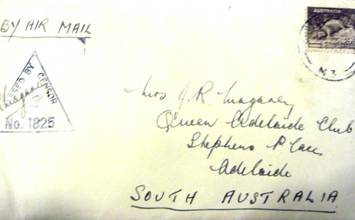 BY AIR MAIL
AUSTRALIA
PASSED BY CENSOR
No. 1825
Mrs J. R. Magarey
Queen Adelaide Club
Stephens Place
Adelaide
SOUTH AUSTRALIA